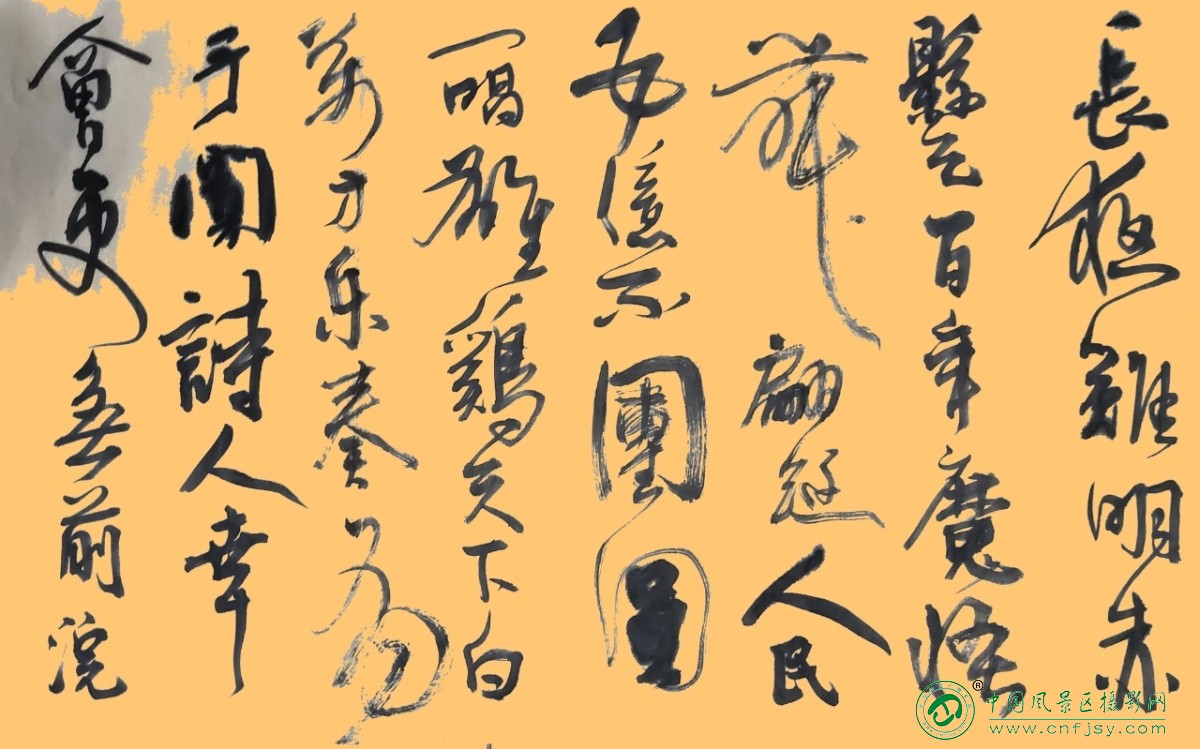 長夜難明赤
縣天百年魔怪
舞翩跹人民
五億不團圓
一唱雄鷄天下白
萬方乐奏有
于闐詩人幸
會更無前浣
®
中国风景区摄影网
www.cnfjsy.com